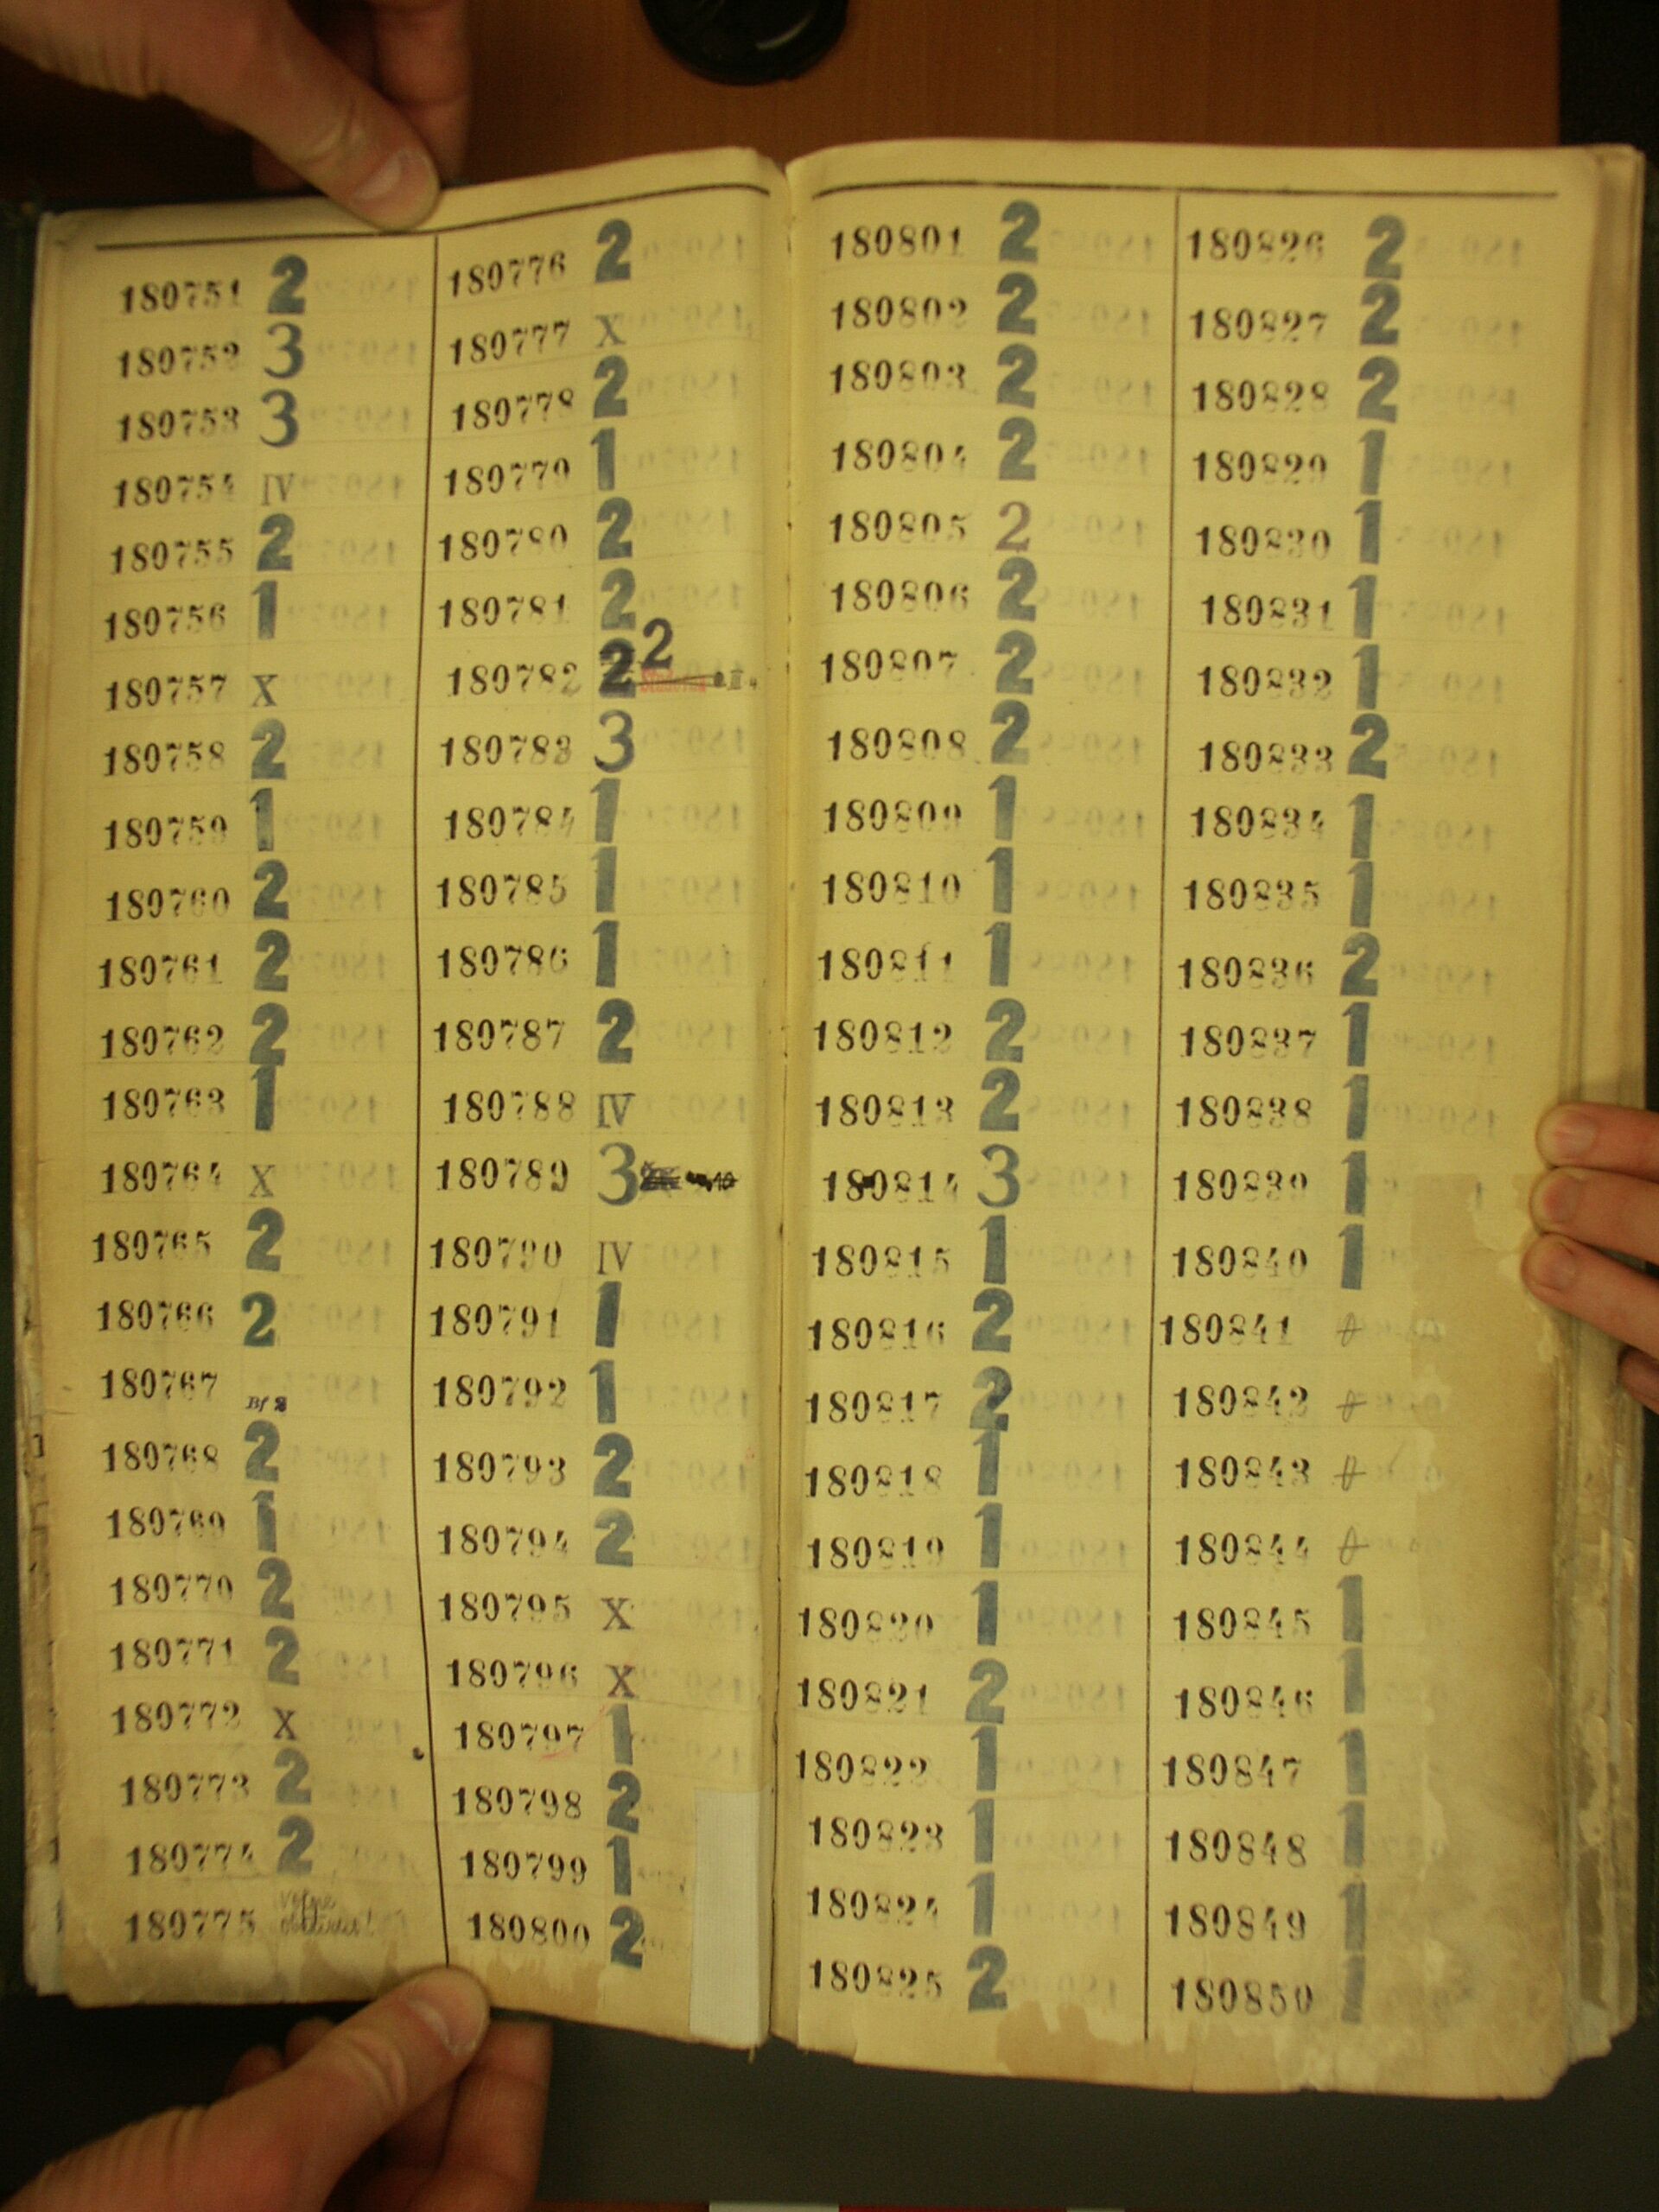 180751 2
180752 3
180753 3
180754 IV
180755 2
180756 1
180757 X
180758 2
180759 1
180760 2
180761 2
180762 2
180763 1
180764 X
180765 2
180766 2
180767 Bf 2
180768 2
180769 1
180770 2
180771 2
180772 X
180773 2
180774 2
180775
180776 2
180777 X
180778 2
180779 1
180780 2
180781 2
180782 2 2
180783 3
180784 1
180785 1
180786 1
180787 2
180788 IV
180789 3
180790 IV
180791 1
180792 1
180793 2
180794 2
180795 X
180796 X
180797 1
180798 2
180799 1
180800 2
180801 2
180802 2
180803 2
180804 2
180805 2
180806 2
180807 2
180808 2
180809 1
180810 1
180811 1
180812 2
180813 2
180814 3
180815 1
180816 2
180817 2
180818 1
180819 1
180820 1
180821 2
180822 1
180823 1
180824 1
180825 2
180826 2
180827 2
180828 2
180829 1
180830 1
180831 1
180832 1
180833 2
180834 1
180835 1
180836 2
180837 1
180838 1
180839 1
180840 1
180841
180842
180843
180844
180845 1
180846 1
180847 1
180848 1
180849 1
180850 1